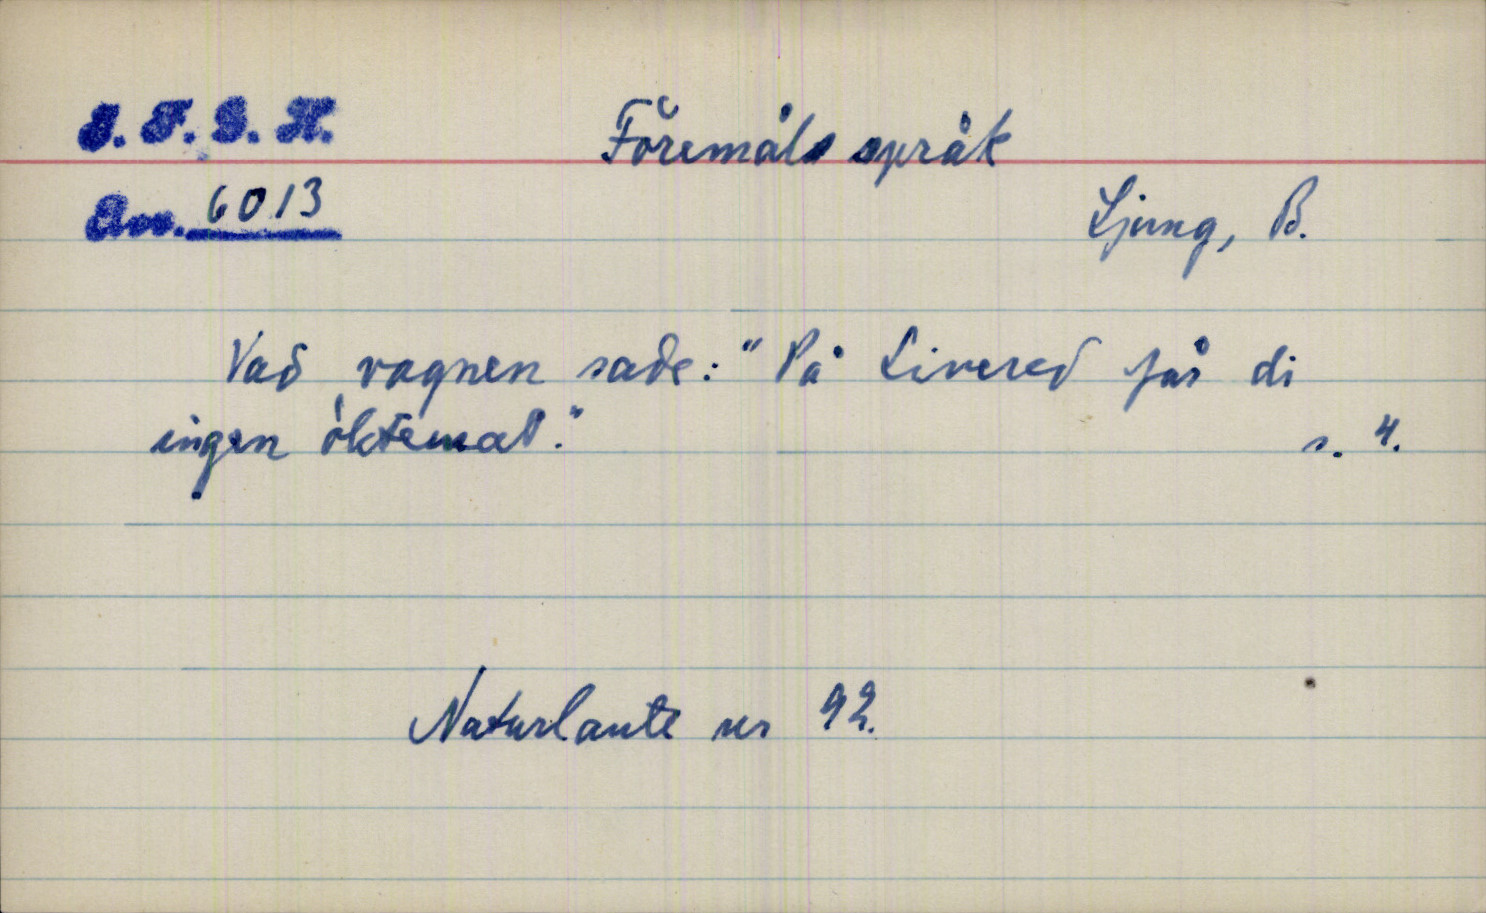 I. F. G. H.
Acc. 6013
Föremåls språk
Ljung, B.
Vad vagnen sade: "På Livered får di
ingen öktemat."
s. 4.
Naturlaute nr 92.